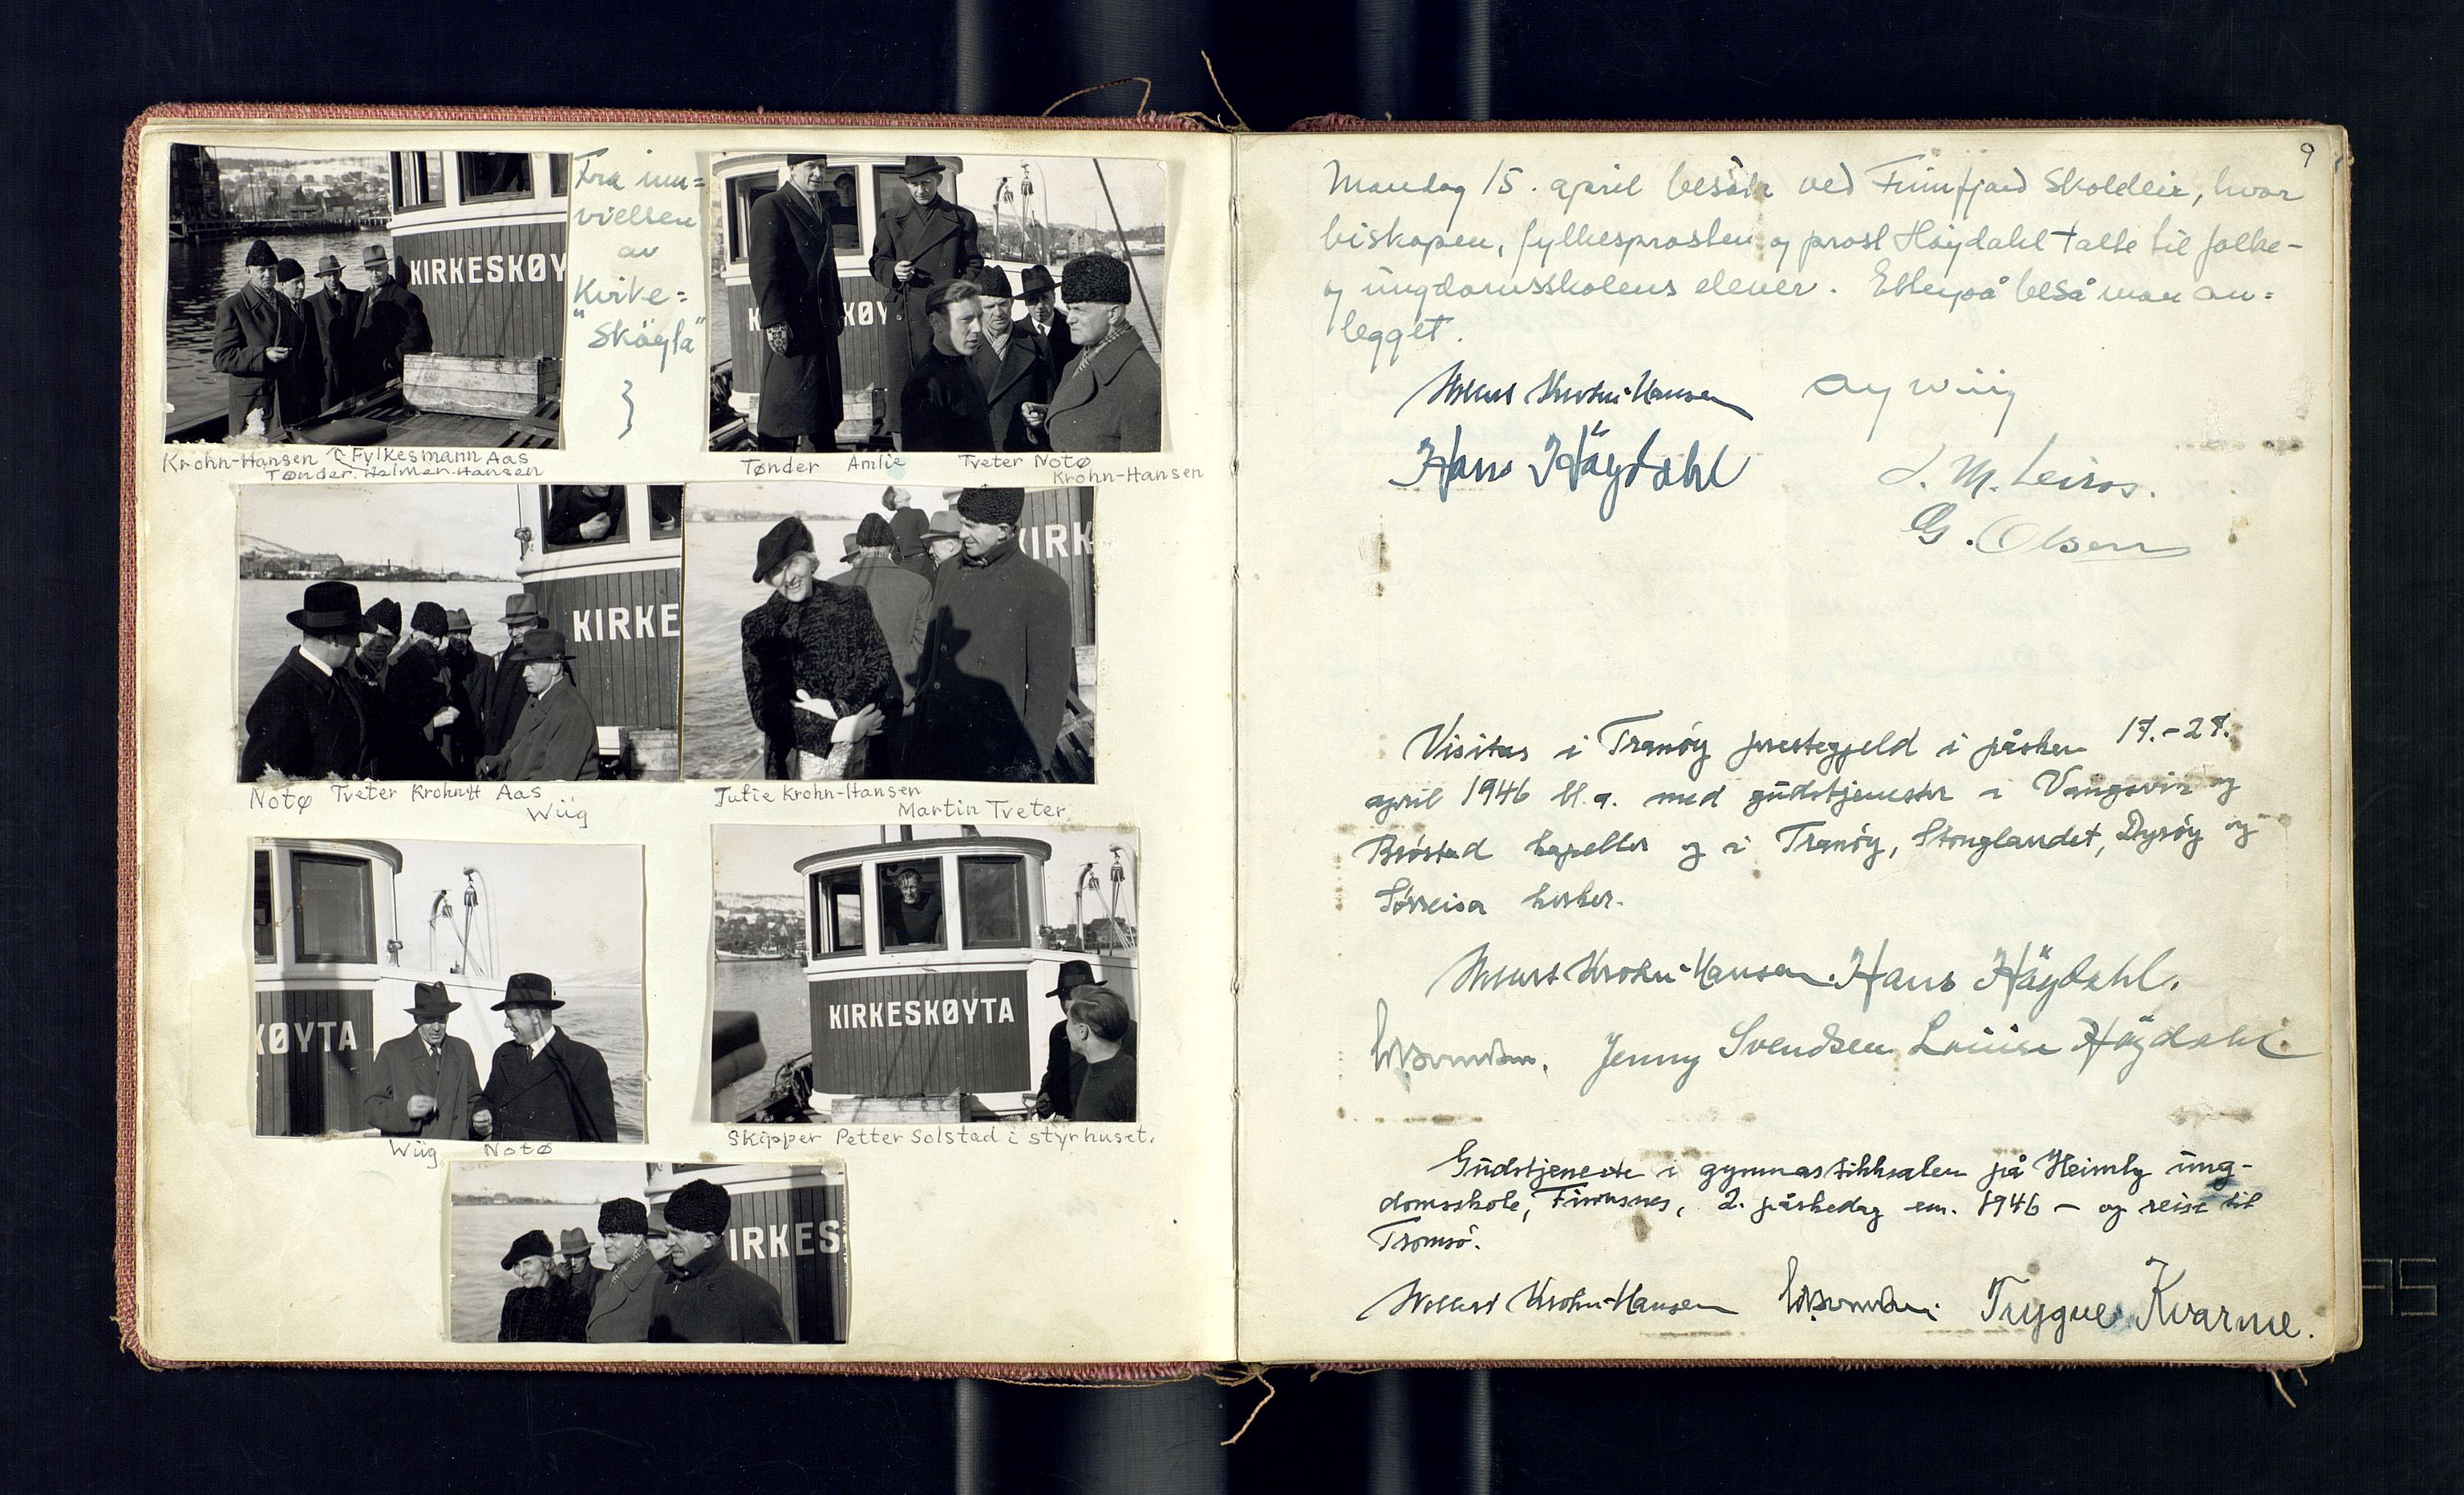 Fra inn=
vielsen
av
Kirke=
"Skøyta"
KIRKESKØY
Krohn-Hansen Fylkesmann Aas
Tønder. Helmer-Hansen
K KØY
Tønder Amlie Tveter Notø
Krohn-Hansen
KIRKE
Notø Tveter Krohn H Aas
Wiig
KIRK
Julie Krohn-Hansen
Martin Tveter
KØYTA
Wiig Notø
KIRKESKØYTA
Skipper Petter Solstad i styrhuset.
IRKES
9
Mandag 15. april besøk ved Finnfjord Skoldeir, hvor
biskopen, fylkesprosten og prost Høydahl talte til folke-
og ungdomsskolens elever. Etterpå beså man an=
legget.
Wollert Krohn-Hansen Wiig
Hans Høydahl
J. M. Leiros.
G. Olsen
Visitas i Tranøy prestegjeld i påsken 17.-27.
april 1946 bl.a. med gudstjenester i Vangsvik og
Brøstad kapeller og i Tranøy, Stonglandet, Dyrøy og
Sørreisa kirker.
Wollert Krohn-Hansen. Hans Høydahl.
Jenny Svendsen Louise Høydahl
Gudstjeneste i gymnastikksalen på Heimly ung-
domsskole, Finnsnes, 2. påskedag em. 1946 – og reise til
Tromsø.
Wollert Krohn-Hansen Trygve Kvarme.